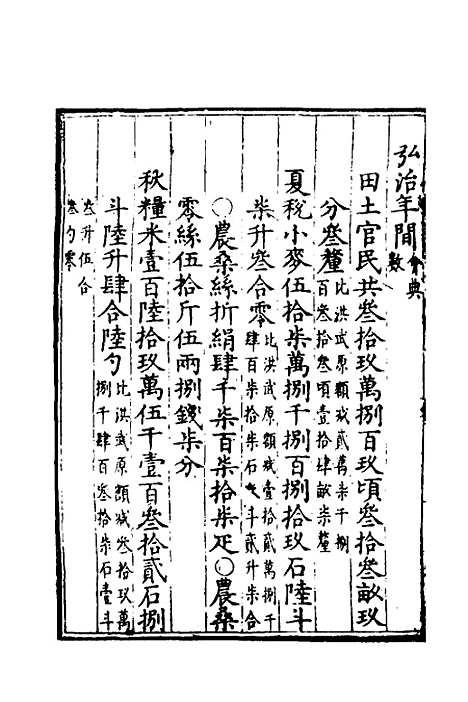 弘治年間會典數
田土官民共叁拾玖萬捌百玖頃叁拾叁畝玖
分叁釐比洪武原額減貳萬柒千捌
百叁拾叁頃壹拾肆畝柒釐
夏稅小麥伍拾柒萬捌千捌百捌拾玖石陸斗
柒升叁合零比洪武原額減壹拾貳萬捌千
肆百柒拾柒石斗貳升柒合
○農桑絲折絹肆千柒百柒拾柒疋○農桑
零絲伍拾斤伍兩捌錢柒分
秋糧米壹百陸拾玖萬伍千壹百叁拾貳石捌
斗陸升肆合陸勺比洪武原額減叁拾玖萬
捌千肆百叁拾柒石壹斗
叁升伍合
叁勺零